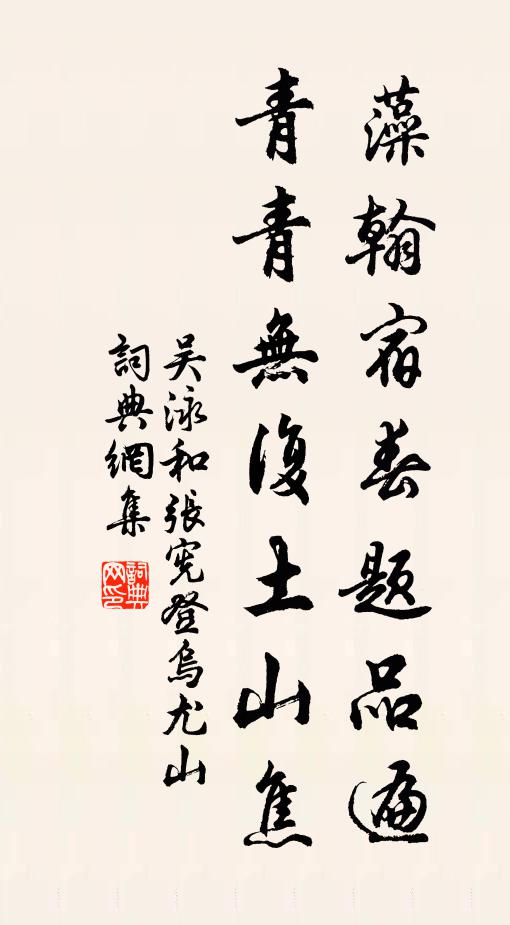 藻翰春題品遍
青青無復土山焦
吴泳和張宪登烏尤山
詞典網集
詞典网印